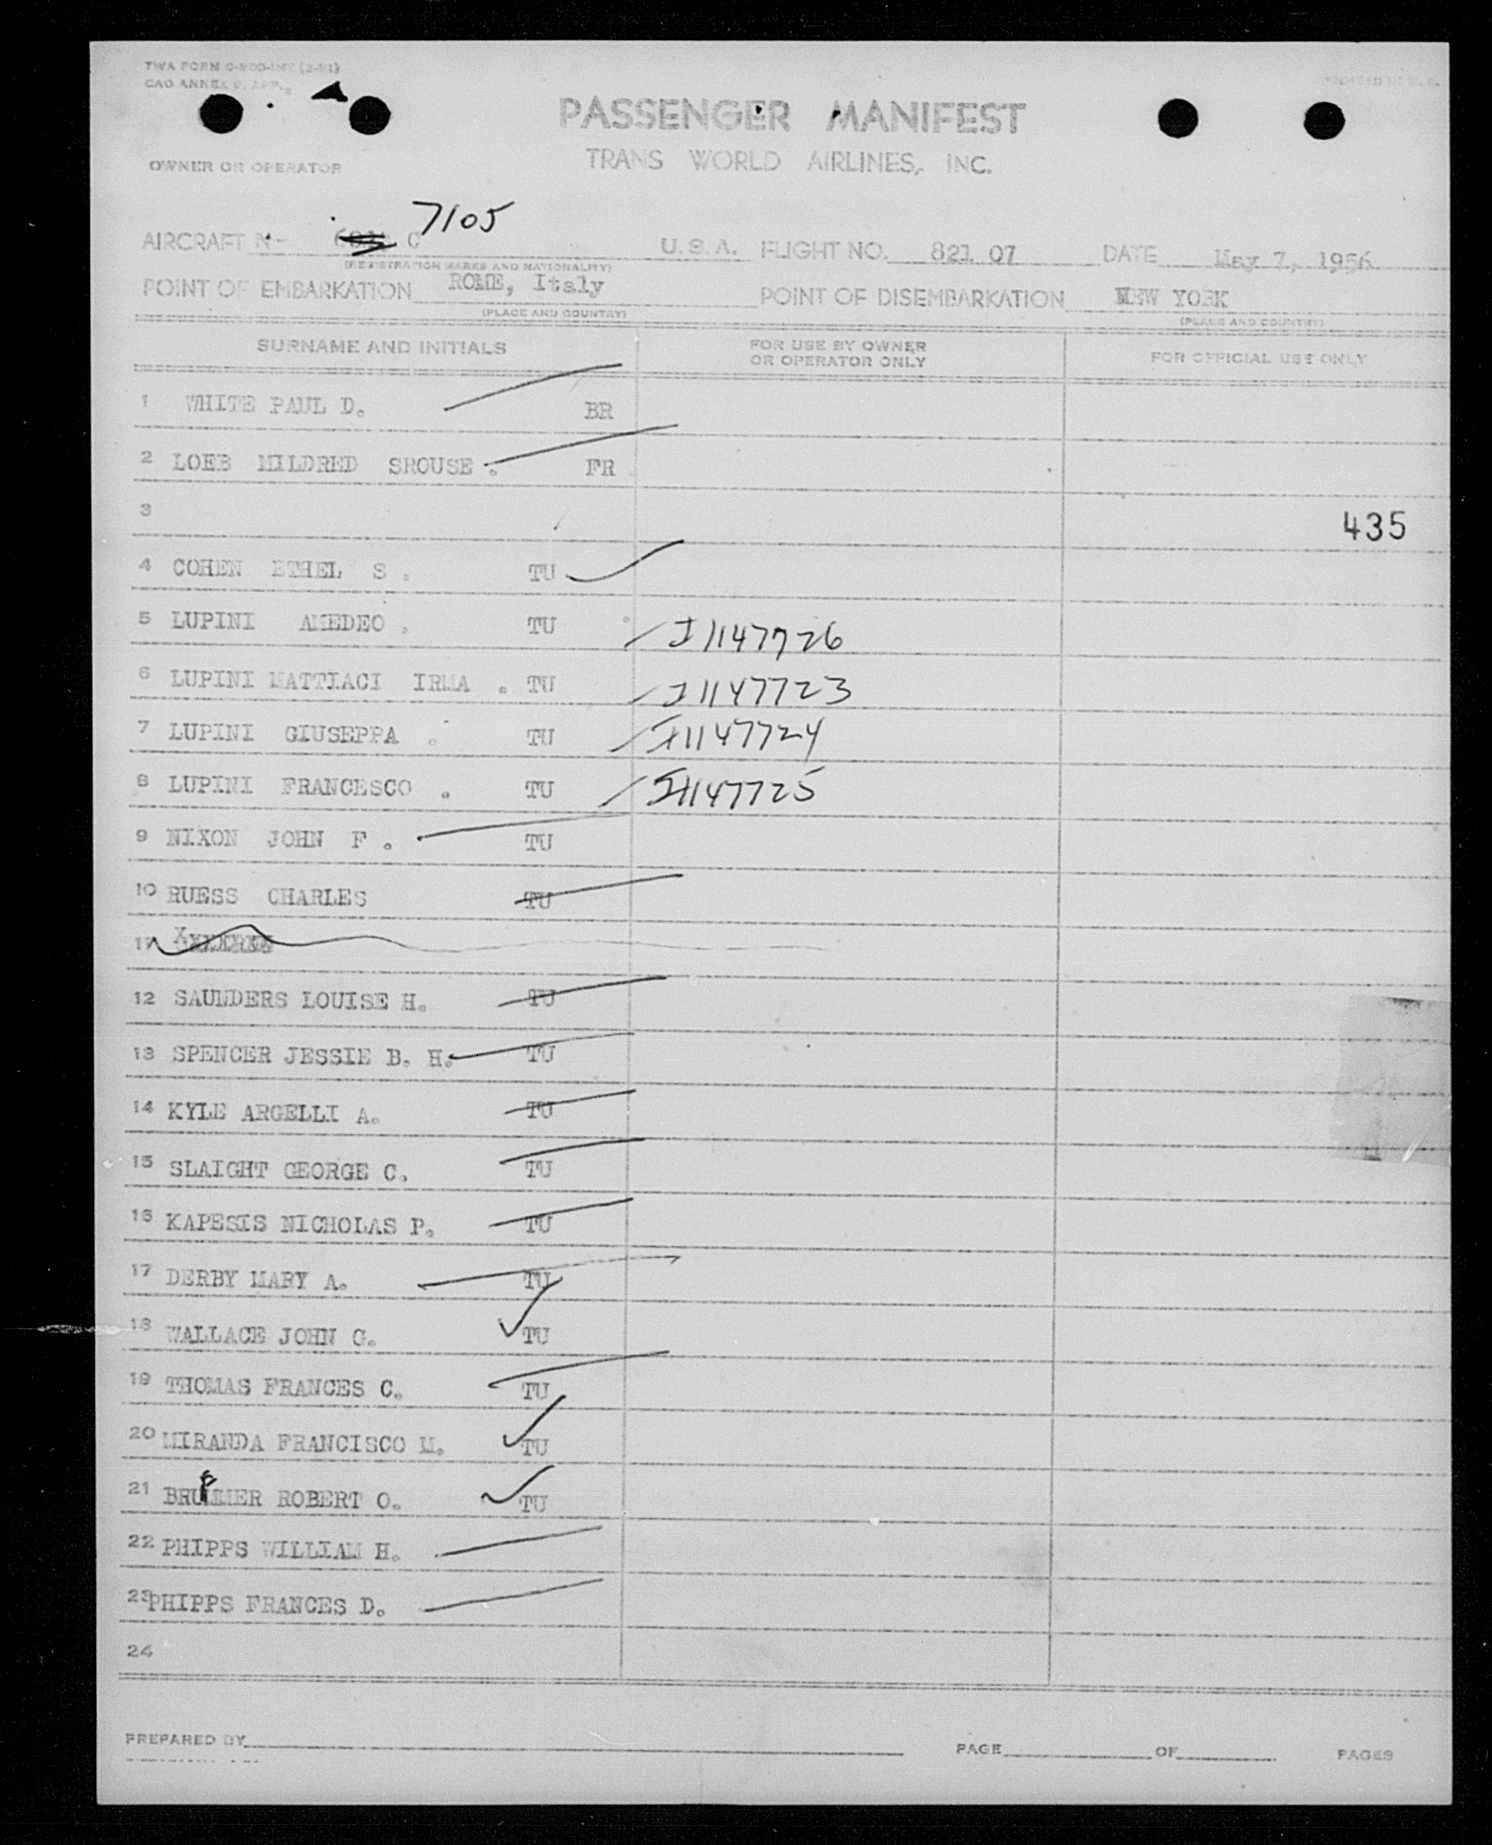 TWA FORM
CAO ANNEX 9, APP.
PASSENGER MANIFEST
OWNER OR OPERATOR
TRANS WORLD AIRLINES, INC.
7105
AIRCRAFT N- C U.S.A. FLIGHT NO. 821 07 DATE May 7, 1956
(REGISTRATION MARKS AND NATIONALITY)
POINT OF EMBARKATION ROME, Italy POINT OF DISEMBARKATION NEW YORK
(PLACE AND COUNTRY) (PLACE AND COUNTRY)
SURNAME AND INITIALS FOR USE BY OWNER OR OPERATOR ONLY FOR OFFICIAL USE ONLY
1 WHITE PAUL D. BR
2 LOEB MILDRED SROUSE . FR
3 435
4 COHEN ETHEL S . TU
5 LUPINI AMEDEO . TU I1147726
6 LUPINI MATTIACI IRMA . TU I1147723
7 LUPINI GIUSEPPA . TU I1147724
8 LUPINI FRANCESCO . TU I1147725
9 NIXON JOHN F . TU
10 RUESS CHARLES TU
11
12 SAUNDERS LOUISE H. TU
13 SPENCER JESSIE B. H. TU
14 KYLE ARGELLI A. TU
15 SLAIGHT GEORGE C. TU
16 KAPESIS NICHOLAS P. TU
17 DERBY MARY A. TU
18 WALLACE JOHN G. TU
19 THOMAS FRANCES C. TU
20 MIRANDA FRANCISCO M. TU
21 ROBERT O. TU
22 PHIPPS WILLIAM H.
23 PHIPPS FRANCES D.
24
PREPARED BY PAGE OF PAGES